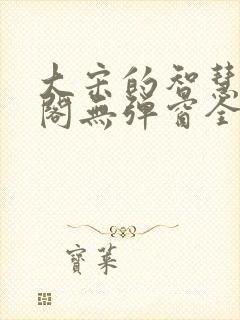 大宋的智慧
閣無彈窗全
寶葉